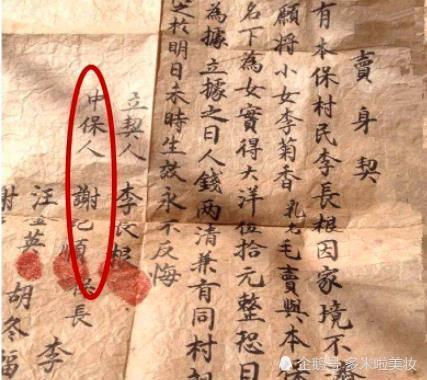 賣身契
有本保村民李長根因家境不
願將小女李菊香乳名毛賣與本
名下為女實得大洋伍拾元整恐日
為據立據之日人錢兩清兼有同村
於明日未時生效永不反悔
立契人 李長根
中保人 謝順保長
汪英 李
胡冬福
謝
企鹅号 多米啦美妆